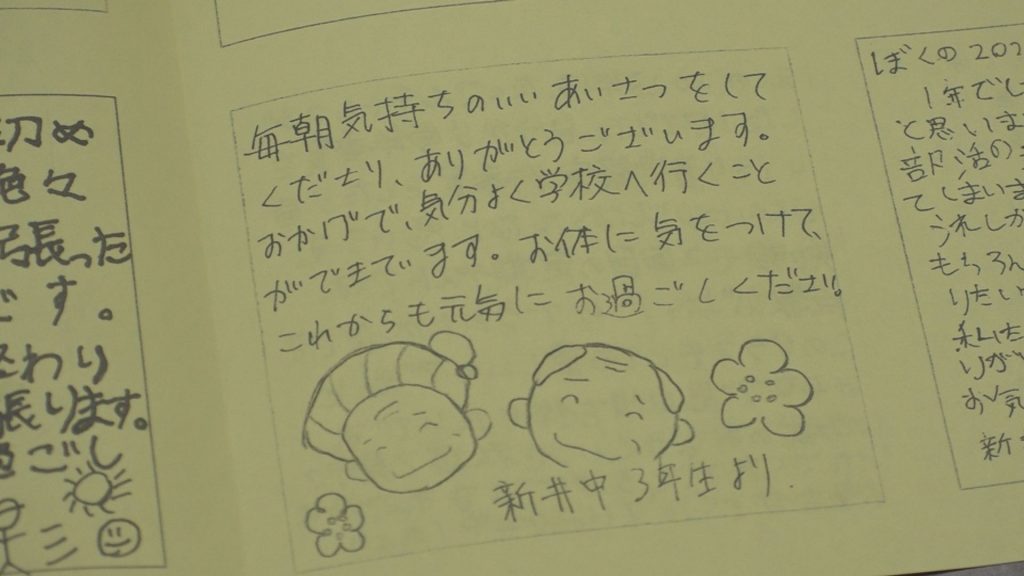 初め
色々
張った
です。
終わり
張ります。
過ごし
毎朝気持ちのいいあいさつをして
くださり、ありがとうございます。
おかげで、気分よく学校へ行くこと
ができています。お体に気をつけて、
これからも元気にお過ごしください。
新井中3年生より.
ぼくの202
1年でし
と思いま
部活の
てしまいま
うれしか
もちろん
りたい
私た
りが
お気
新